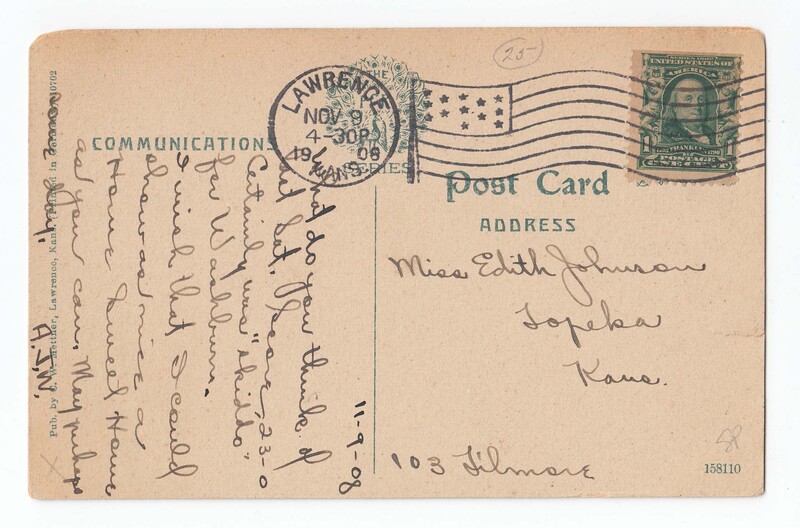 25-
LAWRENCE
NOV 9
4-30P
1908
KANS.
THE
SERIES
SERIES 1902
UNITED STATES OF
AMERICA
FRANKLIN
1 POSTAGE 1
ONE CENT
COMMUNICATIONS
Post Card
ADDRESS
Miss Edith Johnson
Topeka
Kans.
103 Filmore
158110
11-9-08
What do you think of
it Sat. Score, 23-0
Certainly was "skiddo"
for Washburn.
I wish that I could
show as nice a
Home Sweet Home
as you can. May perhaps
some day.
H.J.W.
Pub. by C. W. Mettner, Lawrence, Kans. (Printed in 10702